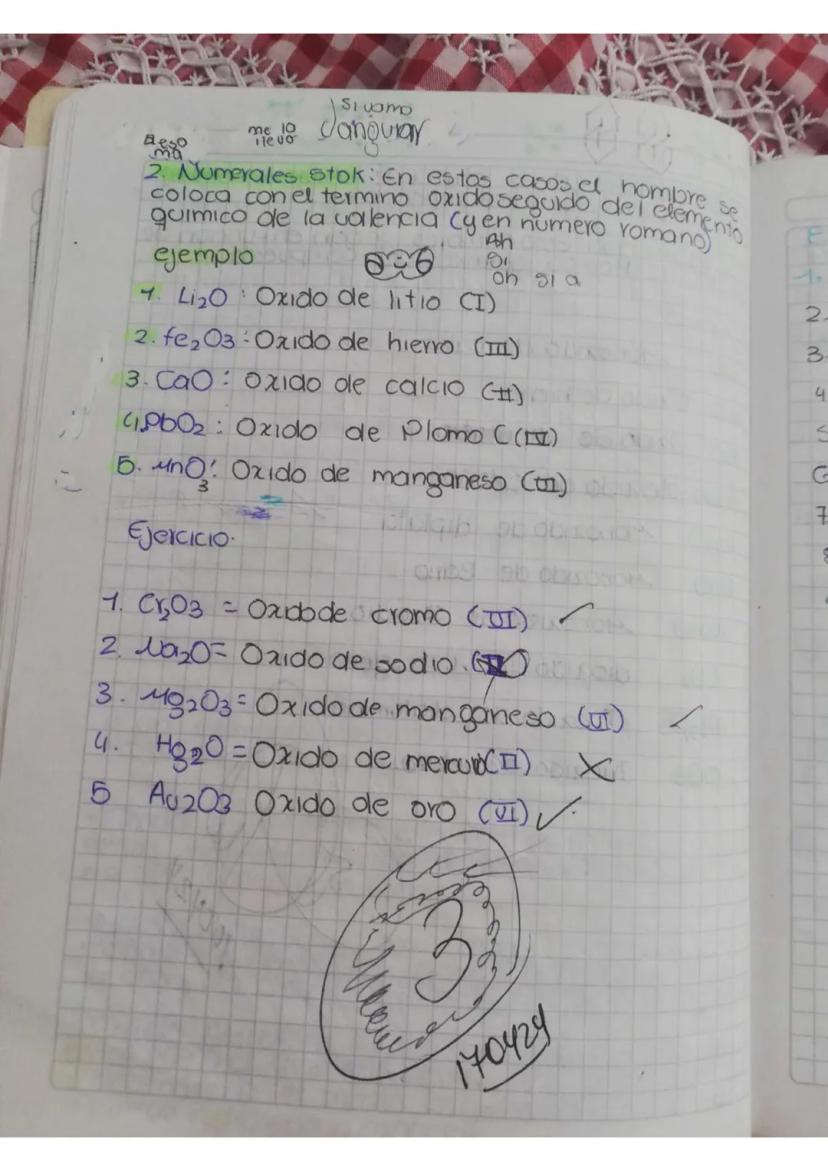 Si vamo
me lo
llevo
Sangurar
Beso
ma
2. Numerales stok: En estos casos el nombre se
coloca con el termino oxido seguido del elemento
quimico de la valencia (y en numero romano)
ejemplo
Ah
si
oh si a
1. Li2O: Oxido de litio (I)
2. fe2O3: Oxido de hierro (III)
3. CaO: Oxido de calcio (II)
4. PbO2: Oxido de Plomo C(IV)
5. MnO3: Oxido de manganeso (III)
Ejercicio.
1. Cr2O3 = Oxido de cromo (VI) ✓
2. Na2O = Oxido de sodio.
3. Mg2O3 = Oxido de manganeso (VI) ✓
4. Hg2O = Oxido de mercurio (II) X
5 Au2O3 Oxido de oro (VI) ✓
3
170424